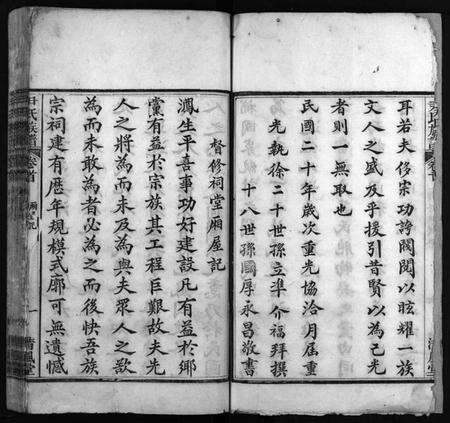 耳若夫侈宗功誇閥閱以眩耀一族
文人之盛及乎援引昔賢以為己光
者則一無取也
民國二十年歲次重光協洽月屆重
光執徐二十世孫立準介福拜撰
十八世孫國厚永昌敬書
督修祠堂廂屋記
鴻生平喜事功好建設凡有益於鄉
黨有益於宗族其工程巨艱故夫光
人之將為而未及為與夫眾人之欲
為而未敢為者必為之而後快吾族
宗祠建有歷年規模式廓可無遺憾
尹氏族譜
卷首
清風堂